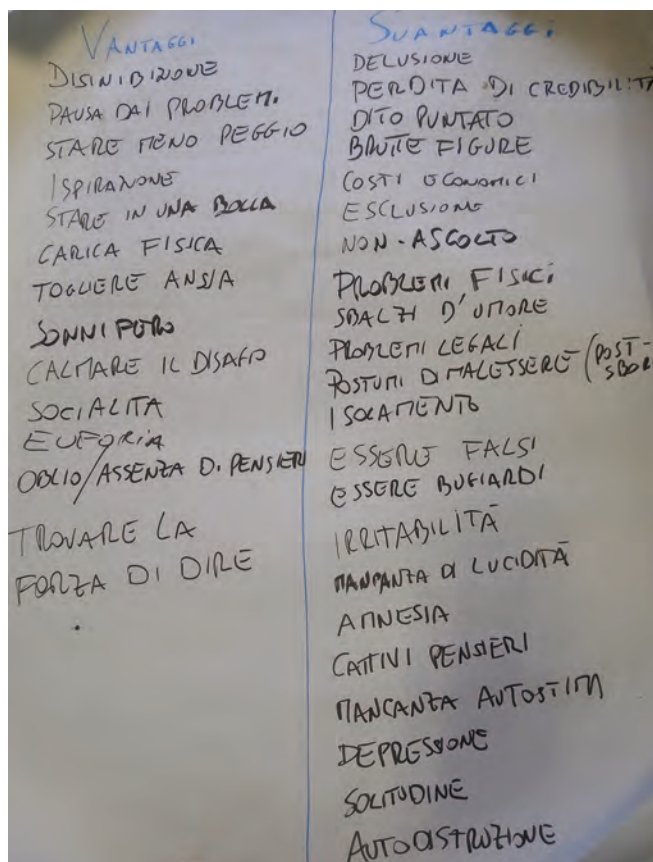 VANTAGGI
DISINIBIZIONE
PAUSA DAI PROBLEMI
STARE MENO PEGGIO
ISPIRAZIONE
STARE IN UNA BOLLA
CARICA FISICA
TOGLIERE ANSIA
SONNIFERO
CALMARE IL DISAGIO
SOCIALITA
EUFORIA
OBLIO/ASSENZA DI PENSIERI
TROVARE LA
FORZA DI DIRE
SVANTAGGI
DELUSIONE
PERDITA DI CREDIBILITÀ
DITO PUNTATO
BRUTTE FIGURE
COSTI ECONOMICI
ESCLUSIONE
NON-ASCOLTO
PROBLEMI FISICI
SBALZI D'UMORE
PROBLEMI LEGALI
POSTUMI DI MALESSERE (POST-
SBOR
ISOLAMENTO
ESSERE FALSI
ESSERE BUGIARDI
IRRITABILITÀ
MANCANZA DI LUCIDITÀ
AMNESIA
CATTIVI PENSIERI
MANCANZA AUTOSTIMA
DEPRESSIONE
SOLITUDINE
AUTODISTRUZIONE